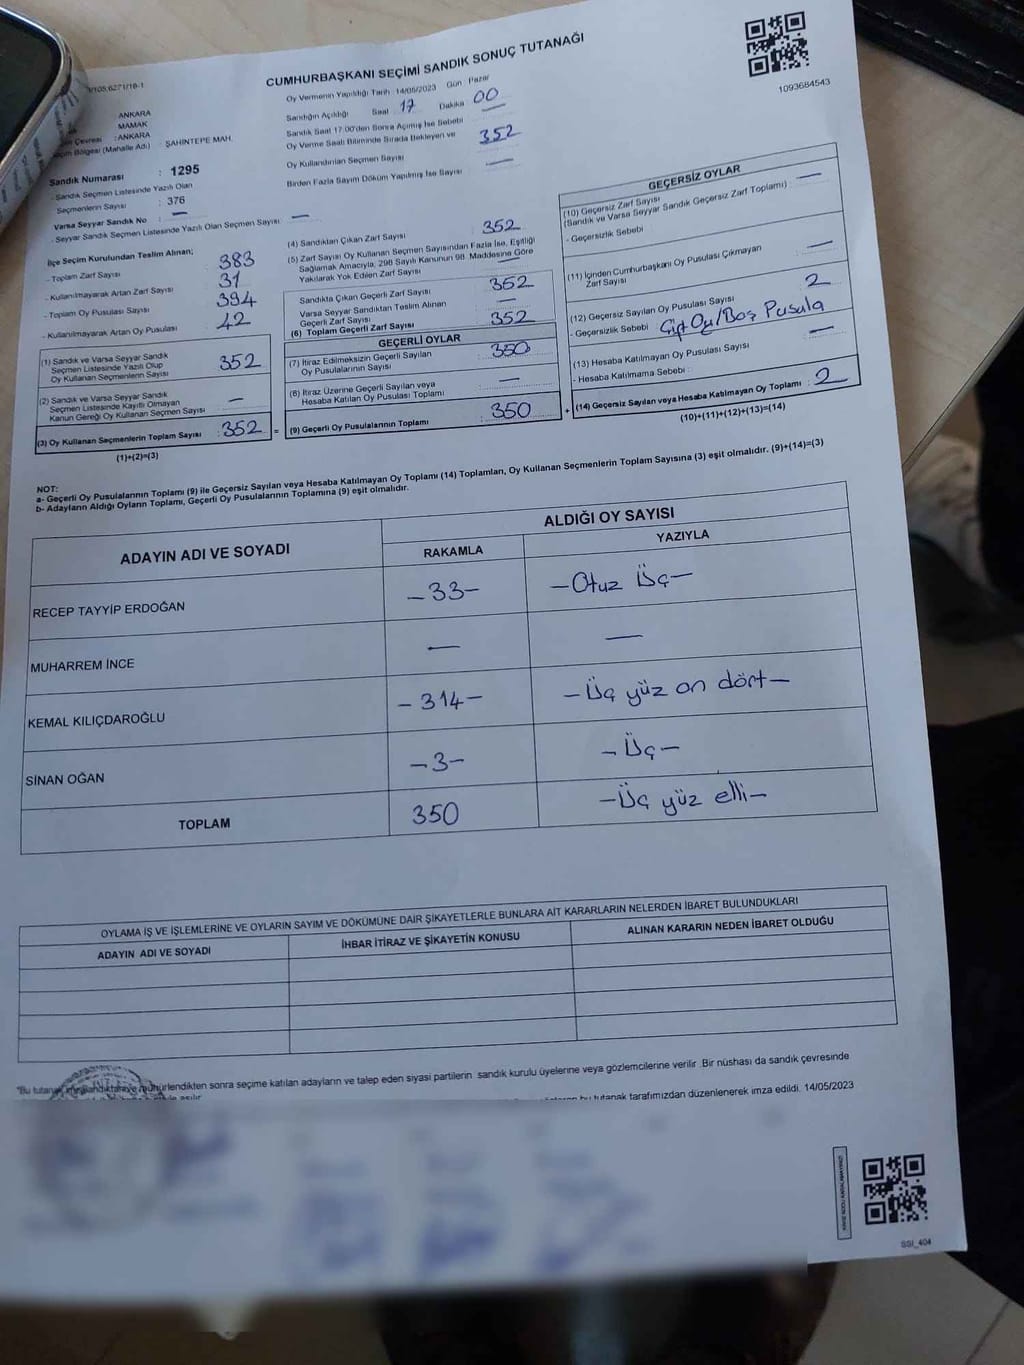 CUMHURBAŞKANI SEÇİMİ SANDIK SONUÇ TUTANAĞI
1093684543
ANKARA
MAMAK
Çevresi : ANKARA
Seçim Bölgesi (Mahalle Adı) : ŞAHİNTEPE MAH.
Sandık Numarası : 1295
- Sandık Seçmen Listesinde Yazılı Olan
Seçmenlerin Sayısı : 376
Varsa Seyyar Sandık No : —
- Seyyar Sandık Seçmen Listesinde Yazılı Olan Seçmen Sayısı : —
Oy Vermenin Yapıldığı Tarih : 14/05/2023 Gün : Pazar
Sandığın Açıldığı Saat 17 Dakika 00
Sandık Saat 17:00'den Sonra Açılmış İse Sebebi —
Oy Verme Saati Bitiminde Sırada Bekleyen ve
Oy Kullandırılan Seçmen Sayısı 352
Birden Fazla Sayım Döküm Yapılmış İse Sayısı —
İlçe Seçim Kurulundan Teslim Alınan;
- Toplam Zarf Sayısı : 383
- Kullanılmayarak Artan Zarf Sayısı : 31
- Toplam Oy Pusulası Sayısı : 394
- Kullanılmayarak Artan Oy Pusulası : 42
(1) Sandık ve Varsa Seyyar Sandık
Seçmen Listesinde Yazılı Olup
Oy Kullanan Seçmenlerin Sayısı : 352
(2) Sandık ve Varsa Seyyar Sandık
Seçmen Listesinde Kayıtlı Olmayan
Kanun Gereği Oy Kullanan Seçmen Sayısı : —
(3) Oy Kullanan Seçmenlerin Toplam Sayısı : 352 =
(1)+(2)=(3)
(4) Sandıktan Çıkan Zarf Sayısı : 352
(5) Zarf Sayısı Oy Kullanan Seçmen Sayısından Fazla İse, Eşitliği
Sağlamak Amacıyla, 298 Sayılı Kanunun 98. Maddesine Göre
Yakılarak Yok Edilen Zarf Sayısı : —
Sandıkta Çıkan Geçerli Zarf Sayısı : 352
Varsa Seyyar Sandıktan Teslim Alınan
Geçerli Zarf Sayısı : —
(6) Toplam Geçerli Zarf Sayısı : 352
GEÇERLİ OYLAR
(7) İtiraz Edilmeksizin Geçerli Sayılan
Oy Pusulalarının Sayısı : 350
(8) İtiraz Üzerine Geçerli Sayılan veya
Hesaba Katılan Oy Pusulası Toplamı : —
(9) Geçerli Oy Pusulalarının Toplamı : 350 +
GEÇERSİZ OYLAR
(10) Geçersiz Zarf Sayısı
(Sandık ve Varsa Seyyar Sandık Geçersiz Zarf Toplamı) : —
- Geçersizlik Sebebi
(11) İçinden Cumhurbaşkanı Oy Pusulası Çıkmayan
Zarf Sayısı : —
(12) Geçersiz Sayılan Oy Pusulası Sayısı : 2
- Geçersizlik Sebebi Çift Oy/Boş Pusula
(13) Hesaba Katılmayan Oy Pusulası Sayısı : —
- Hesaba Katılmama Sebebi :
(14) Geçersiz Sayılan veya Hesaba Katılmayan Oy Toplamı : 2
(10)+(11)+(12)+(13)=(14)
NOT:
a- Geçerli Oy Pusulalarının Toplamı (9) ile Geçersiz Sayılan veya Hesaba Katılmayan Oy Toplamı (14) Toplamları, Oy Kullanan Seçmenlerin Toplam Sayısına (3) eşit olmalıdır. (9)+(14)=(3)
b- Adayların Aldığı Oyların Toplamı, Geçerli Oy Pusulalarının Toplamına (9) eşit olmalıdır.
ADAYIN ADI VE SOYADI
ALDIĞI OY SAYISI
RAKAMLA YAZIYLA
RECEP TAYYİP ERDOĞAN -33- -Otuz Üç-
MUHARREM İNCE — —
KEMAL KILIÇDAROĞLU -314- -Üç yüz on dört-
SİNAN OĞAN -3- -Üç-
TOPLAM 350 -Üç yüz elli-
OYLAMA İŞ VE İŞLEMLERİNE VE OYLARIN SAYIM VE DÖKÜMÜNE DAİR ŞİKAYETLERLE BUNLARA AİT KARARLARIN NELERDEN İBARET BULUNDUKLARI
ADAYIN ADI VE SOYADI İHBAR İTİRAZ VE ŞİKAYETİN KONUSU ALINAN KARARIN NEDEN İBARET OLDUĞU
"Bu tutanak mühürlendikten sonra seçime katılan adayların ve talep eden siyasi partilerin sandık kurulu üyelerine veya gözlemcilerine verilir. Bir nüshası da sandık çevresinde
bu tutanak tarafımızdan düzenlenerek imza edildi. 14/05/2023
SSI_404